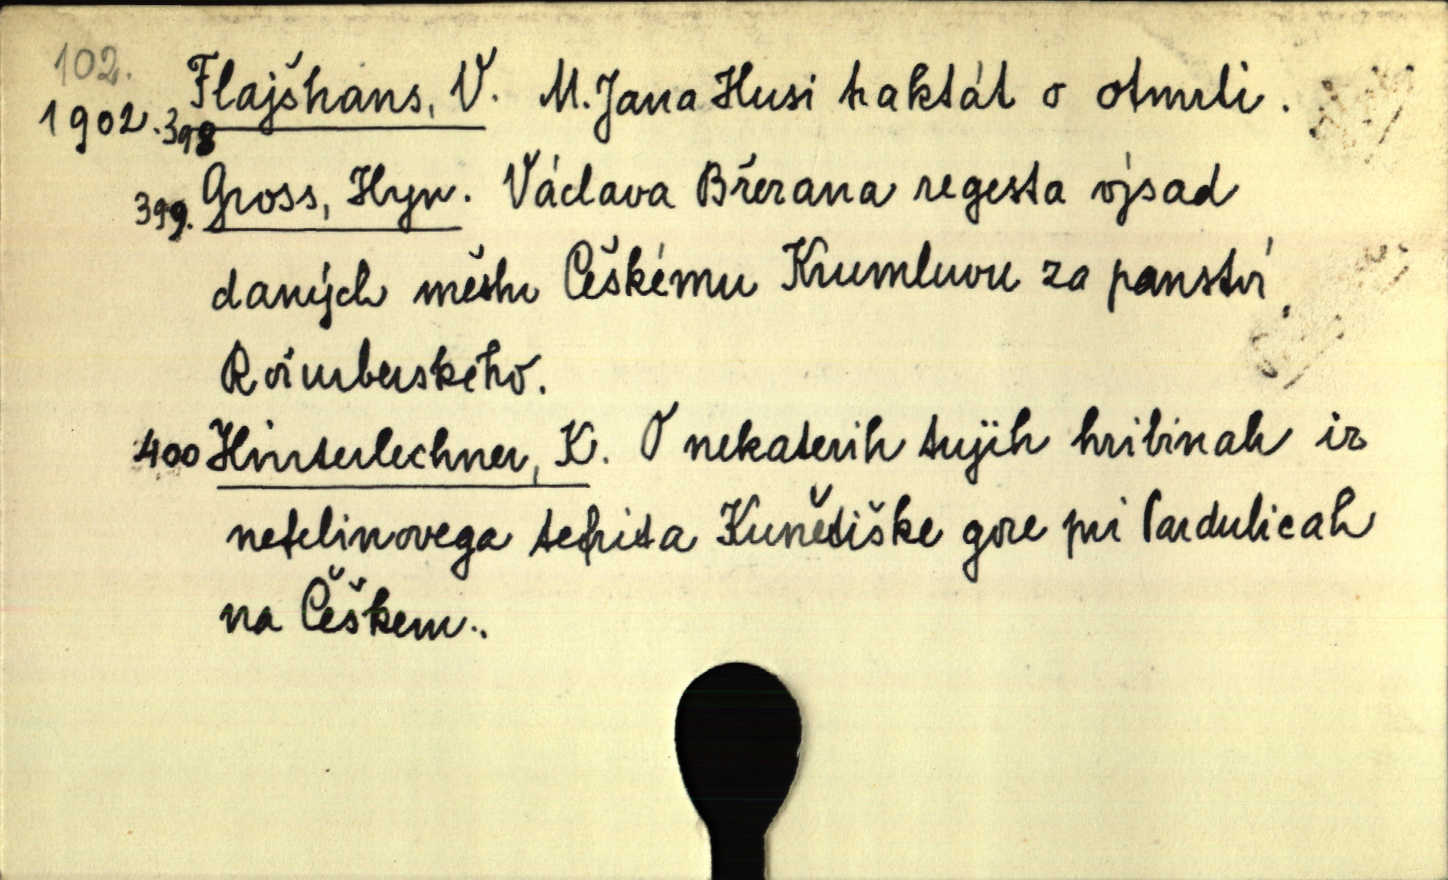 102.
1902. 398 Flajšhans, V. M. Jana Husi traktát o otmrti.
399. Gross, Hyn. Václava Březana regesta výsad
daných městu Českému Krumlovu za panství
Rožmberského.
400 Hinterlechner, K. O nekaterih tujih hribinah iz
nefelinovega tefrita Kunětiške gore pri Pardubicah
na Češkem.